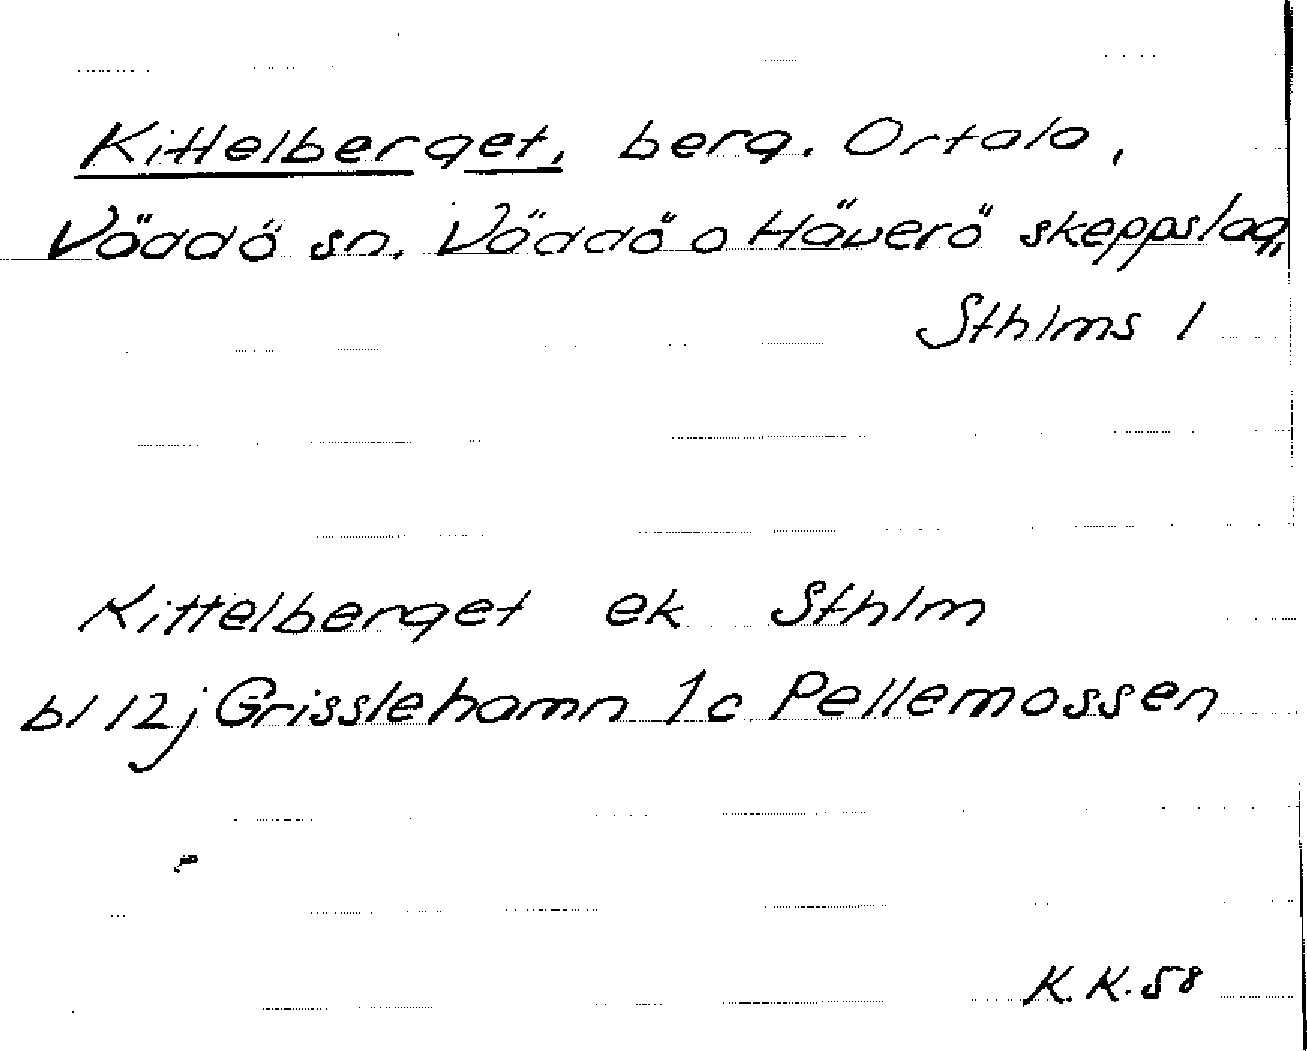 Kittelberget, berg. Ortala,
Väddö sn. Väddö o Häverö skeppslag,
Sthlms l
Kittelberget ek Sthlm
bl 12j Grisslehamn 1c Pellemossen
K.K.58